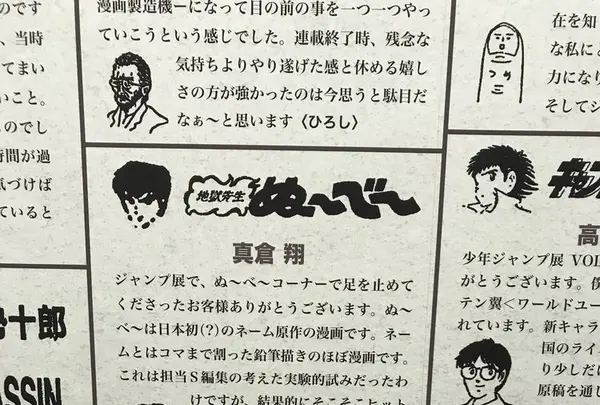 のです
、当時
てまい
いこと。
ものでし
時間が過
気づけば
ていると
十郎
ASSIN
漫画製造機ーになって目の前の事を一つ一つやっ
ていこうという感じでした。連載終了時、残念な
気持ちよりやり遂げた感と休める嬉し
さの方が強かったのは今思うと駄目だ
なぁ〜と思います〈ひろし〉
地獄先生
ぬ〜べ〜
真倉 翔
ジャンプ展で、ぬ〜べ〜コーナーで足を止めて
くださったお客様ありがとうございます。ぬ〜
べ〜は日本初(?)のネーム原作の漫画です。ネー
ムとはコマまで割った鉛筆描きのほぼ漫画です。
これは担当S編集の考えた実験的試みだったわ
けですが、結果的にそこそこヒット
在を知
な私にと
力になり
そしてジ
キャプ
高
少年ジャンプ展 VOL
がとうございます。僕
テン翼＜ワールドユー
れています。新キャラ
国のライ
り少しだけ
原稿を通し